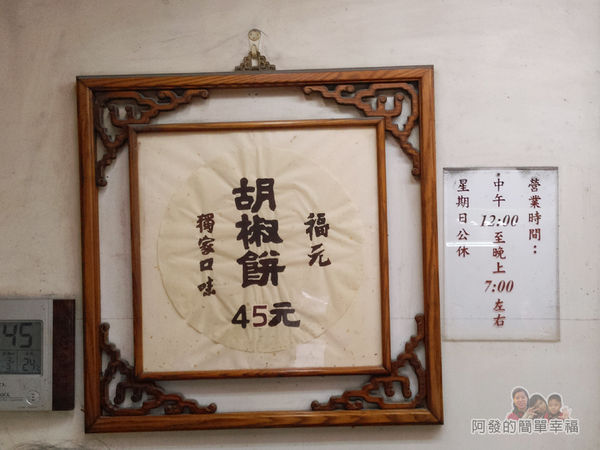 福元
胡椒餅
45元
獨家口味
營業時間：
中午12:00至晚上7:00左右
星期日公休
45
24
阿發的簡單幸福